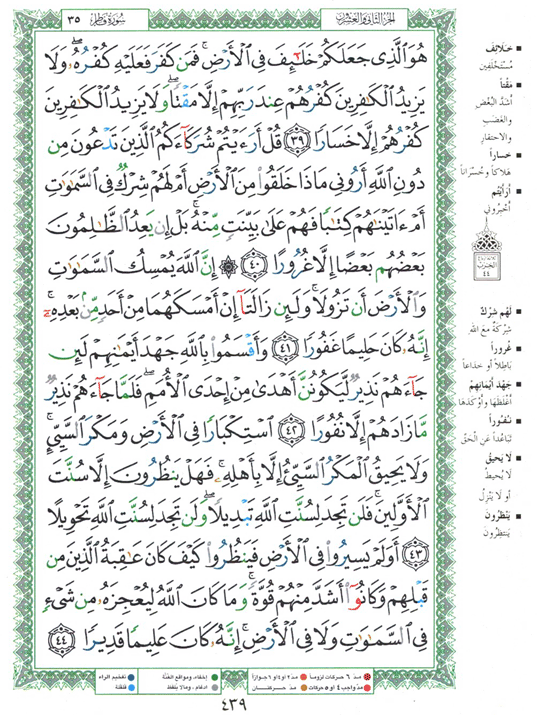 ٣٥
سُورَةُ فَاطِرٍ
الجزء الثاني والعشرون
هُوَ ٱلَّذِى جَعَلَكُمْ خَلَٰٓئِفَ فِى ٱلْأَرْضِ ۚ فَمَن كَفَرَ فَعَلَيْهِ كُفْرُهُۥ ۖ وَلَا
يَزِيدُ ٱلْكَٰفِرِينَ كُفْرُهُمْ عِندَ رَبِّهِمْ إِلَّا مَقْتًا ۖ وَلَا يَزِيدُ ٱلْكَٰفِرِينَ
كُفْرُهُمْ إِلَّا خَسَارًا ٣٩ قُلْ أَرَءَيْتُمْ شُرَكَآءَكُمُ ٱلَّذِينَ تَدْعُونَ مِن
دُونِ ٱللَّهِ أَرُونِى مَاذَا خَلَقُوا۟ مِنَ ٱلْأَرْضِ أَمْ لَهُمْ شِرْكٌ فِى ٱلسَّمَٰوَٰتِ
أَمْ ءَاتَيْنَٰهُمْ كِتَٰبًا فَهُمْ عَلَىٰ بَيِّنَتٍ مِّنْهُ ۚ بَلْ إِن يَعِدُ ٱلظَّٰلِمُونَ
بَعْضُهُم بَعْضًا إِلَّا غُرُورًا ٤٠ ۞ إِنَّ ٱللَّهَ يُمْسِكُ ٱلسَّمَٰوَٰتِ
وَٱلْأَرْضَ أَن تَزُولَا ۚ وَلَئِن زَالَتَآ إِنْ أَمْسَكَهُمَا مِنْ أَحَدٍ مِّنۢ بَعْدِهِۦٓ ۚ
إِنَّهُۥ كَانَ حَلِيمًا غَفُورًا ٤١ وَأَقْسَمُوا۟ بِٱللَّهِ جَهْدَ أَيْمَٰنِهِمْ لَئِن
جَآءَهُمْ نَذِيرٌ لَّيَكُونُنَّ أَهْدَىٰ مِنْ إِحْدَى ٱلْأُمَمِ ۖ فَلَمَّا جَآءَهُمْ نَذِيرٌ
مَّا زَادَهُمْ إِلَّا نُفُورًا ٤٢ ٱسْتِكْبَارًا فِى ٱلْأَرْضِ وَمَكْرَ ٱلسَّيِّئِ ۚ
وَلَا يَحِيقُ ٱلْمَكْرُ ٱلسَّيِّئُ إِلَّا بِأَهْلِهِۦ ۚ فَهَلْ يَنظُرُونَ إِلَّا سُنَّتَ
ٱلْأَوَّلِينَ ۚ فَلَن تَجِدَ لِسُنَّتِ ٱللَّهِ تَبْدِيلًا ۖ وَلَن تَجِدَ لِسُنَّتِ ٱللَّهِ تَحْوِيلًا
٤٣ أَوَلَمْ يَسِيرُوا۟ فِى ٱلْأَرْضِ فَيَنظُرُوا۟ كَيْفَ كَانَ عَٰقِبَةُ ٱلَّذِينَ مِن
قَبْلِهِمْ وَكَانُوٓا۟ أَشَدَّ مِنْهُمْ قُوَّةً ۚ وَمَا كَانَ ٱللَّهُ لِيُعْجِزَهُۥ مِن شَىْءٍ
فِى ٱلسَّمَٰوَٰتِ وَلَا فِى ٱلْأَرْضِ ۚ إِنَّهُۥ كَانَ عَلِيمًا قَدِيرًا ٤٤
خَلَائِفَ
مُسْتَخْلَفِين
مَقْتًا
أَشَدَّ البُغْضِ
والغَضَبِ
والاحتقارِ
خَسَارًا
هَلَاكًا وخُسْرَانًا
أَرَأَيْتُمْ
أَخْبِرُونِي
الحزب
٤٤
لَهُمْ شِرْكٌ
شِرْكَةٌ مَعَ اللهِ
غُرُورًا
بَاطِلًا أَوْ خِدَاعًا
جَهْدَ أَيْمَانِهِمْ
أَغْلَظَهَا وَأَوْكَدَهَا
نُفُورًا
تَبَاعُدًا عَنِ الْحَقِّ
لَا يَحِيقُ
لَا يُحِيطُ
أَوْ لَا يَنْزِلُ
يَنْظُرُونَ
يَنْتَظِرُونَ
مدّ ٦ حركات لزوماً
مدّ ٢ أو ٤ أو ٦ جوازاً
إخفاء، ومواقع الغنّة
تفخيم الراء
مدّ واجب ٤ أو ٥ حركات
مدّ حركتان
ادغام، وما لا يلفظ
قلقلة
٤٣٩